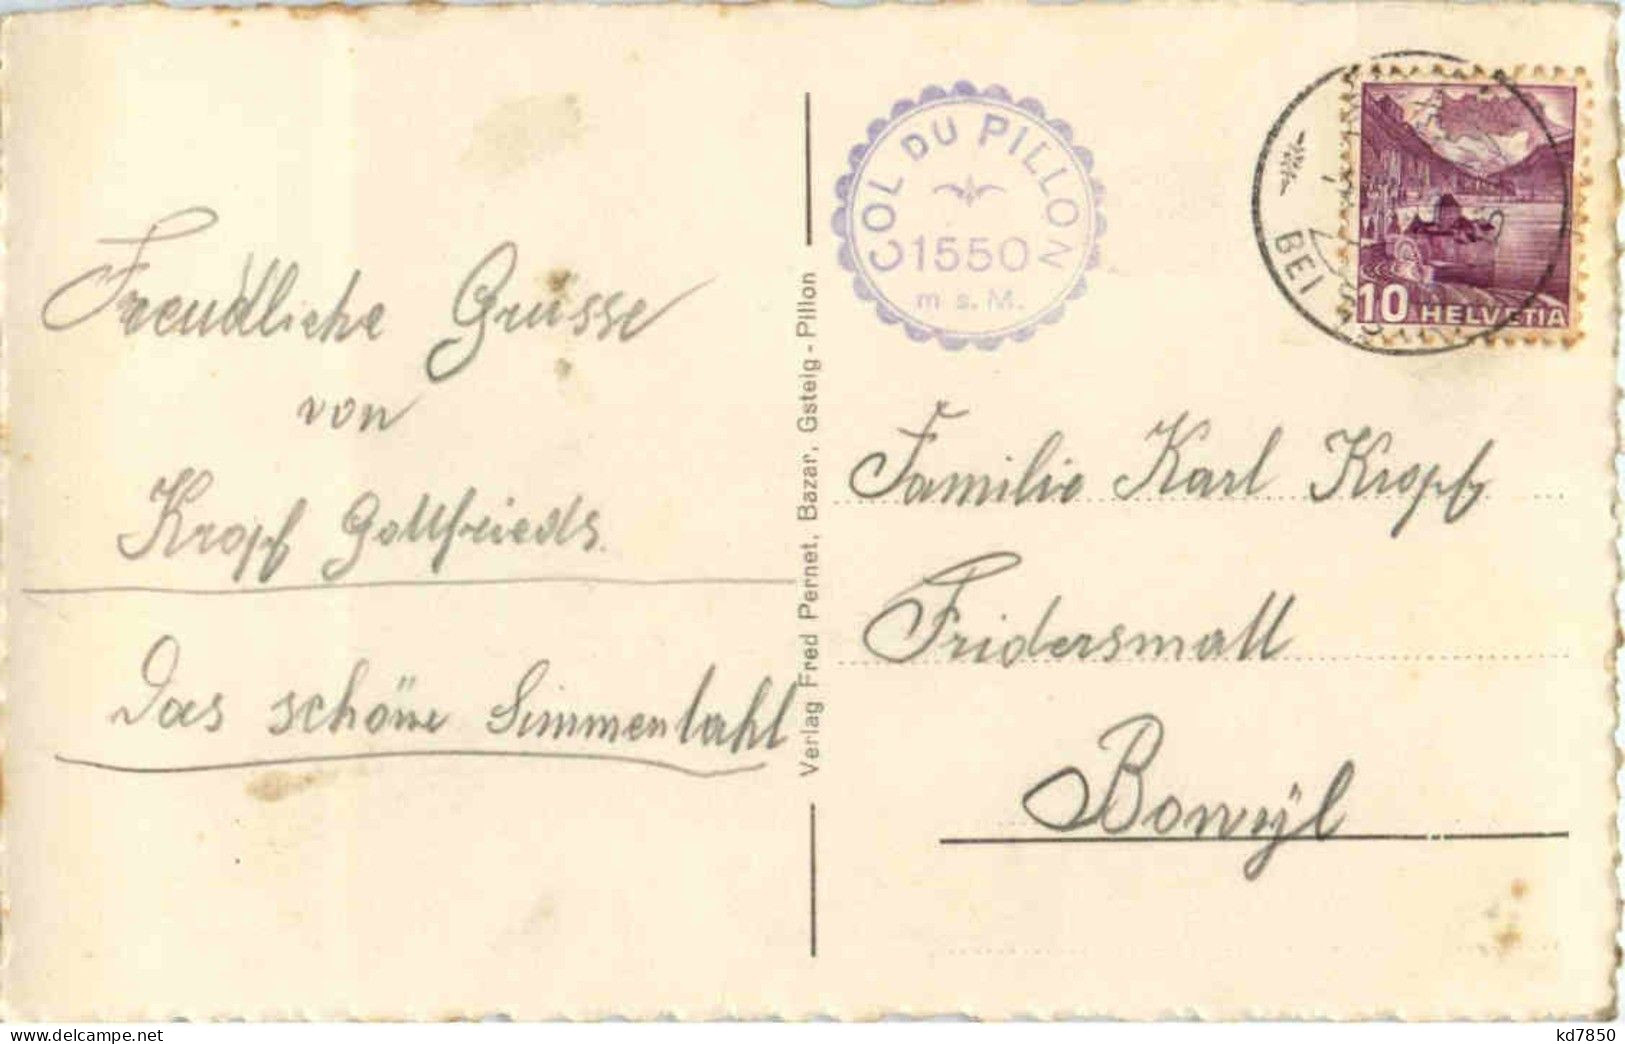 Freudliche Grüsse
von
Kropf Gottfrieds.
Das schöne Simmentahl
Verlag Fred Pernet, Bazar, Gsteig - Pillon
COL DU PILLON
1550
m s. M.
BEI
10 HELVETIA
Familie Karl Kropf
Fridersmatt
Bowÿl
kd7850